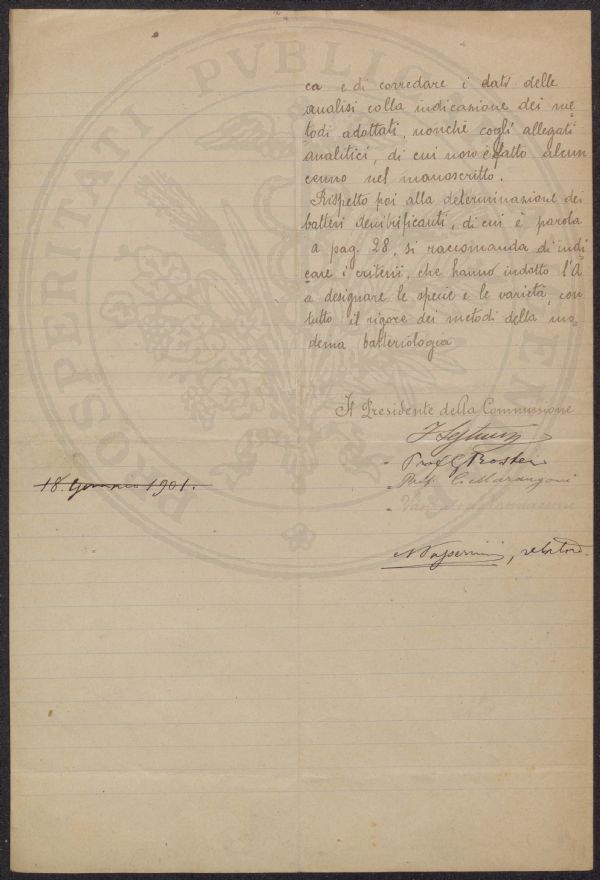 ca e di corredare i dati delle
analisi colla indicazione dei me
todi adottati, nonchè cogli allegati
analitici, di cui non è fatto alcun
cenno nel manoscritto.
Rispetto poi alla determinazione dei
batteri denitrificanti, di cui è parola
a pag. 28, si raccomanda di indi
care i criterii, che hanno indotto l'A
a designare le specie e le varietà, con
tutto il rigore dei metodi della mo
derna batteriologia
Il Presidente della Commissione
Prof. C. Marangoni
18. Gennaio 1901.
N Passerini, relatore.
PROSPERITATI PVBLICAE